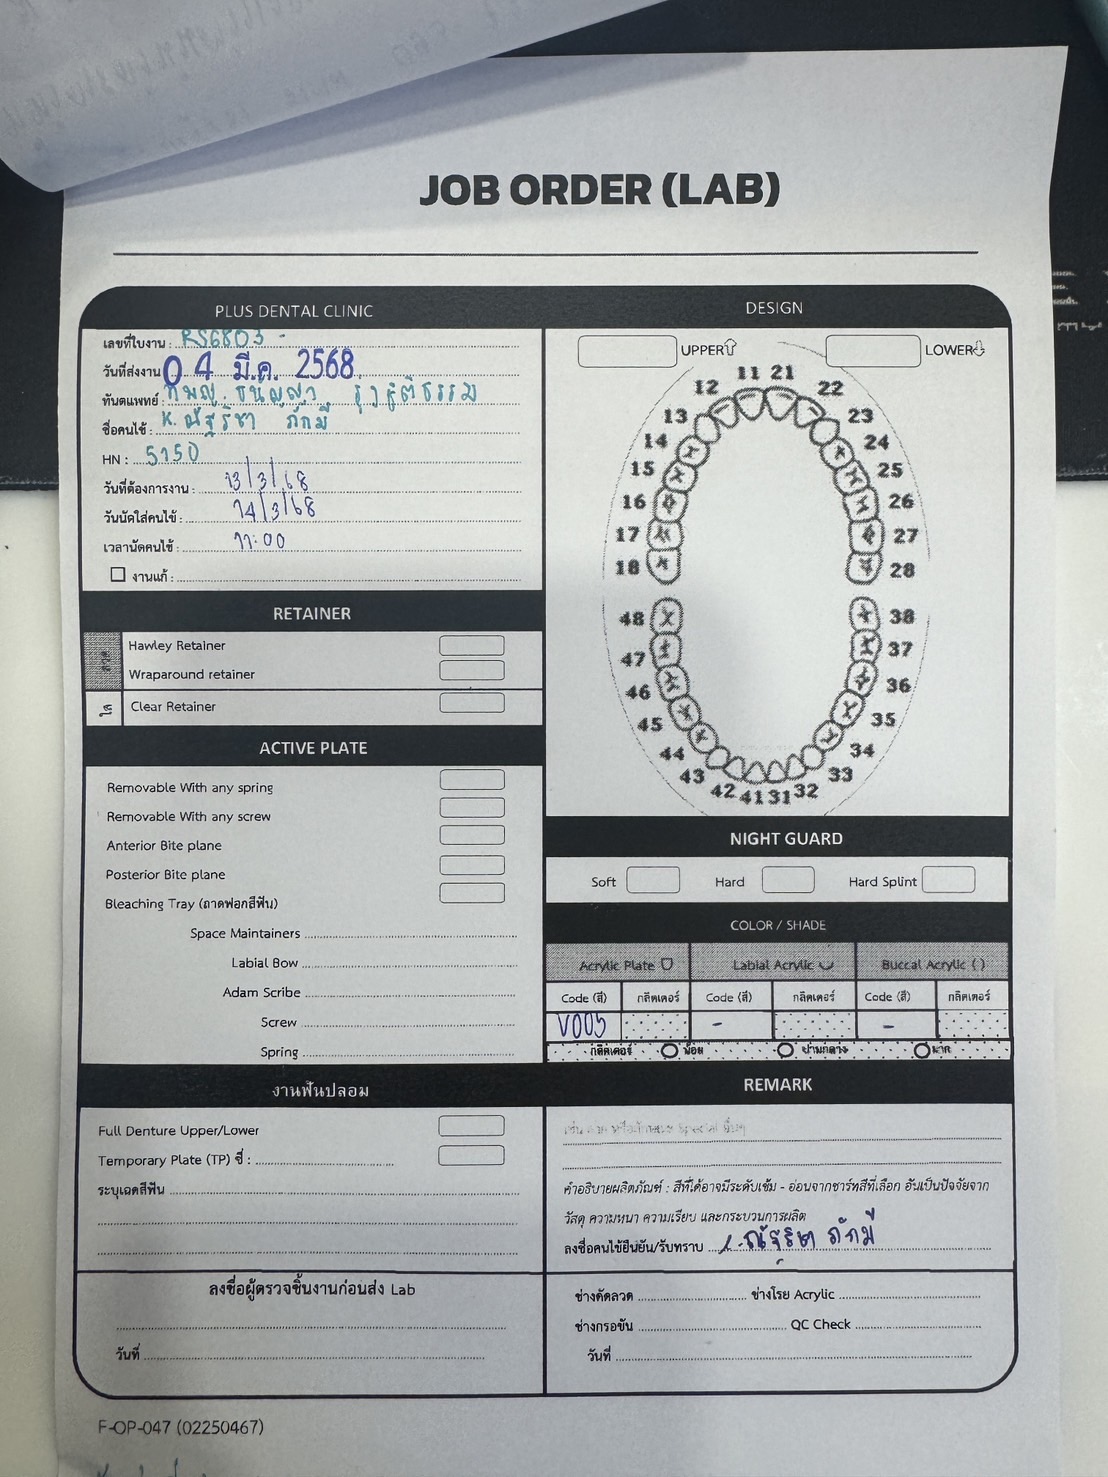 JOB ORDER (LAB)
PLUS DENTAL CLINIC
เลขที่ใบงาน : RS6803 -
วันที่ส่งงาน 04 มี.ค. 2568
ทันตแพทย์ : ทพญ. ธนัญญา
ชื่อคนไข้ : K. ณัฐริชา ภักมี
HN : 5150
วันที่ต้องการงาน : 13/3/68
วันนัดใส่คนไข้ : 14/3/68
เวลานัดคนไข้ : 11:00
งานแก้ :
RETAINER
ลวด
Hawley Retainer
Wraparound retainer
ใส
Clear Retainer
ACTIVE PLATE
Removable With any spring
Removable With any screw
Anterior Bite plane
Posterior Bite plane
Bleaching Tray (ถาดฟอกสีฟัน)
Space Maintainers
Labial Bow
Adam Scribe
Screw
Spring
งานฟันปลอม
Full Denture Upper/Lower
Temporary Plate (TP) ซี่ :
ระบุเฉดสีฟัน
ลงชื่อผู้ตรวจชิ้นงานก่อนส่ง Lab
วันที่
DESIGN
UPPER LOWER
11 21
12 22
13 23
14 24
15 25
16 26
17 27
18 28
48 38
47 37
46 36
45 35
44 34
43 33
42 41 31 32
NIGHT GUARD
Soft Hard Hard Splint
COLOR / SHADE
Acrylic Plate Labial Acrylic Buccal Acrylic ( )
Code (สี) กลิตเตอร์ Code (สี) กลิตเตอร์ Code (สี) กลิตเตอร์
V005 - -
กลิตเตอร์ น้อย ปานกลาง มาก
REMARK
คำอธิบายผลิตภัณฑ์ : สีที่ได้อาจมีระดับเข้ม - อ่อนจากชาร์ทสีที่เลือก อันเป็นปัจจัยจาก
วัสดุ ความหนา ความเรียบ และกระบวนการผลิต
ลงชื่อคนไข้ยืนยัน/รับทราบ ภักมี
ช่างดัดลวด ช่างโรย Acrylic
ช่างกรอขัน QC Check
วันที่
F-OP-047 (02250467)